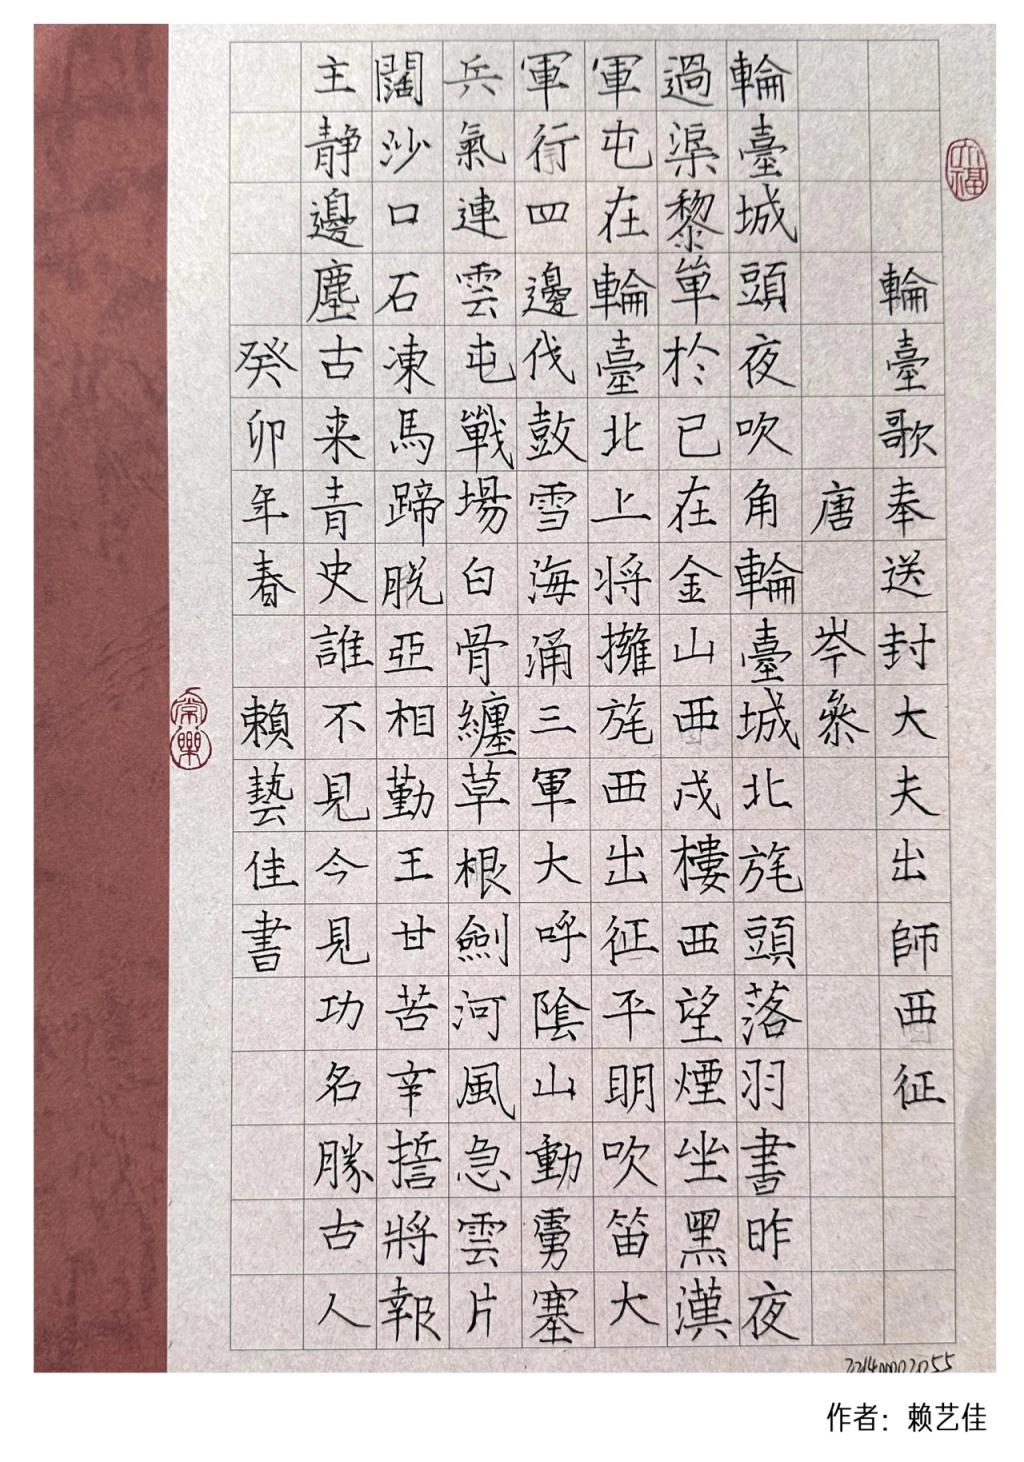 輪臺歌奉送封大夫出師西征
唐 岑叅
輪臺城頭夜吹角輪臺城北旄頭落羽書昨夜
過渠黎單於已在金山西戍樓西望煙尘黑漢
軍屯在輪臺北上將擁旄西出征平明吹笛大
軍行四邊伐鼓雪海涌三軍大呼陰山動虜塞
兵氣連雲屯戰場白骨纏草根劍河風急雲片
闊沙口石凍馬蹄脫亞相勤王甘苦辛誓將報
主静邊塵古来青史誰不見今見功名勝古人
癸卯年春 賴藝佳書
常樂
作者：赖艺佳